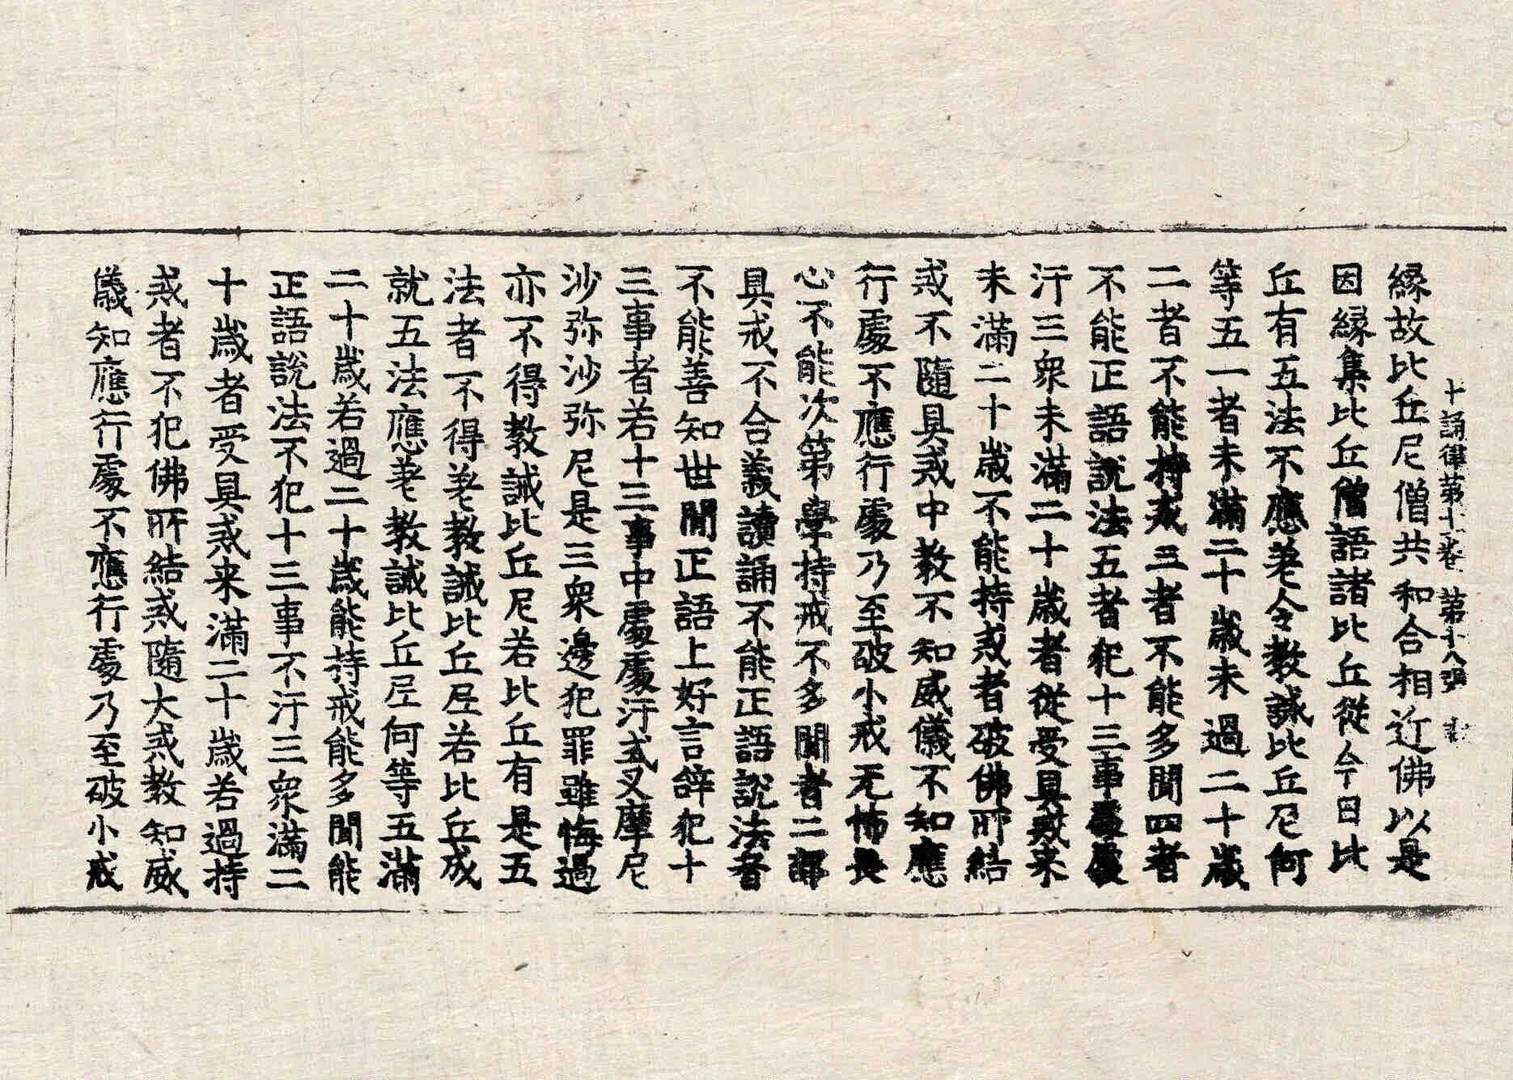 十誦律第十一卷 第十八張
縁故比丘尼僧共和合相近佛以是
因縁集比丘僧語諸比丘從今日比
丘有五法不應差令教誡比丘尼何
等五一者未滿二十歲未過二十歲
二者不能持戒三者不能多聞四者
不能正語說法五者犯十三事處處
汙三衆未滿二十歲者從受具戒来
未滿二十歲不能持戒者破佛所結
戒不隨具戒中教不知威儀不知應
行處不應行處乃至破小戒无怖畏
心不能次第學持戒不多聞者二部
具戒不合義讀誦不能正語說法者
不能善知世間正語上好言辝犯十
三事者若十三事中處處汙式叉摩尼
沙弥沙弥尼是三衆邊犯罪雖悔過
亦不得教誡比丘尼若比丘有是五
法者不得差教誡比丘尼若比丘成
就五法應差教誡比丘尼何等五滿
二十歲若過二十歲能持戒能多聞能
正語說法不犯十三事不汙三衆滿二
十歲者受具戒来滿二十歲若過持
戒者不犯佛所結戒隨大戒教知威
儀知應行處不應行處乃至破小戒